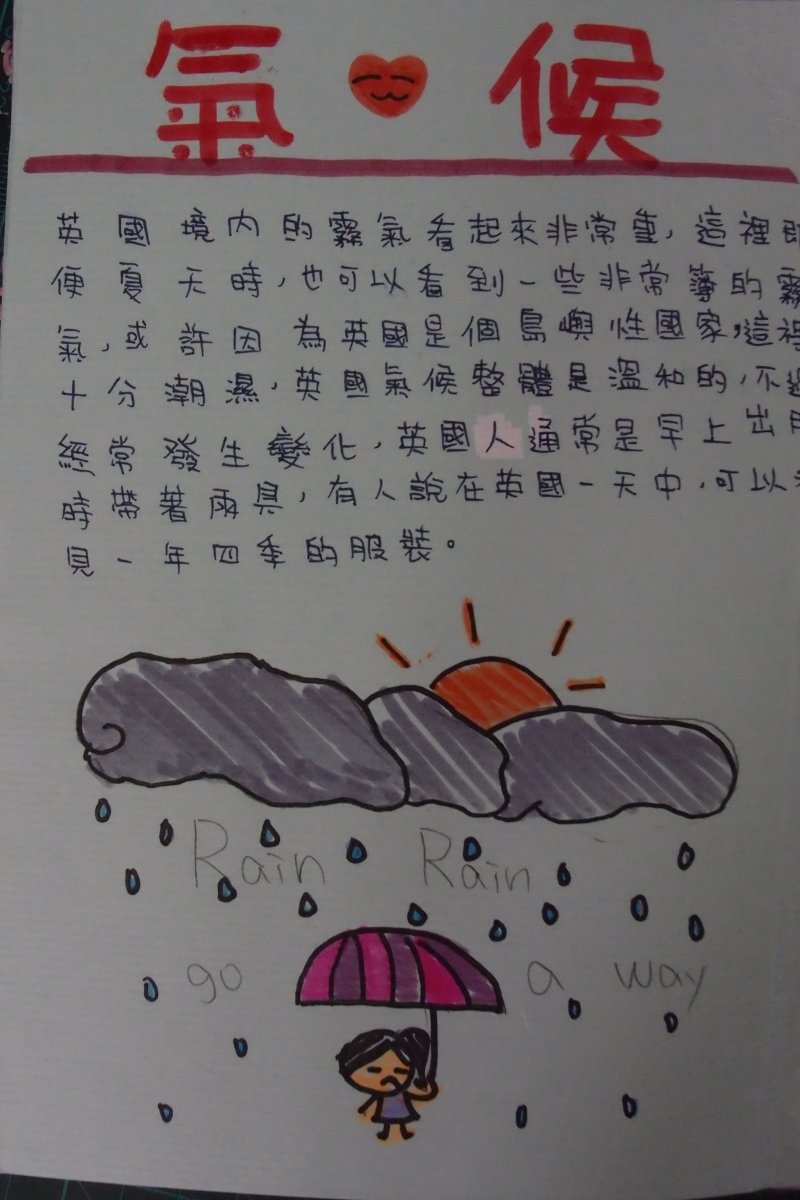 氣候
英國境內的霧氣看起來非常重，這裡即
便夏天時，也可以看到一些非常簿的霧
氣，或許因為英國是個島嶼性國家，這裡
十分潮濕，英國氣候整體是溫和的，不過
經常發生變化，英國人通常是早上出門
時帶著雨具，有人說在英國一天中，可以
見一年四季的服裝。
Rain Rain
go a way